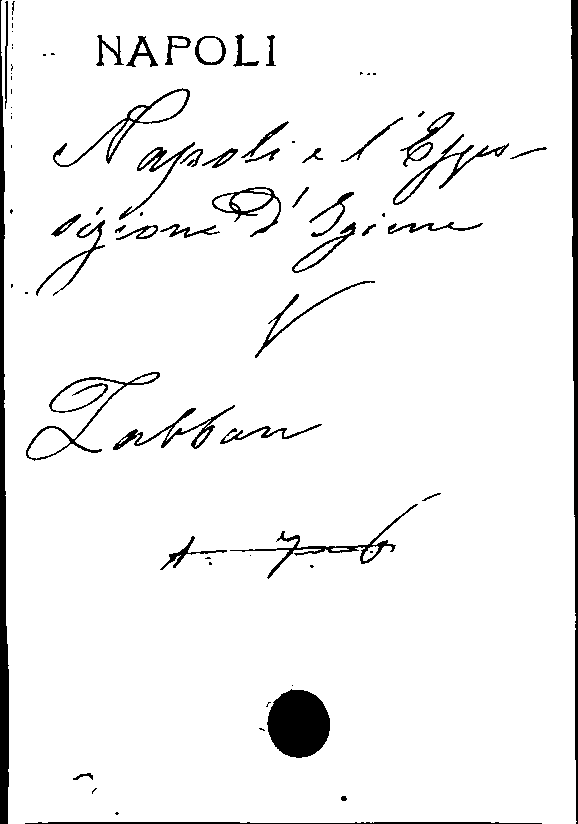 NAPOLI
Napoli e l'Espo-
sizione d'Igiene
V
Labban